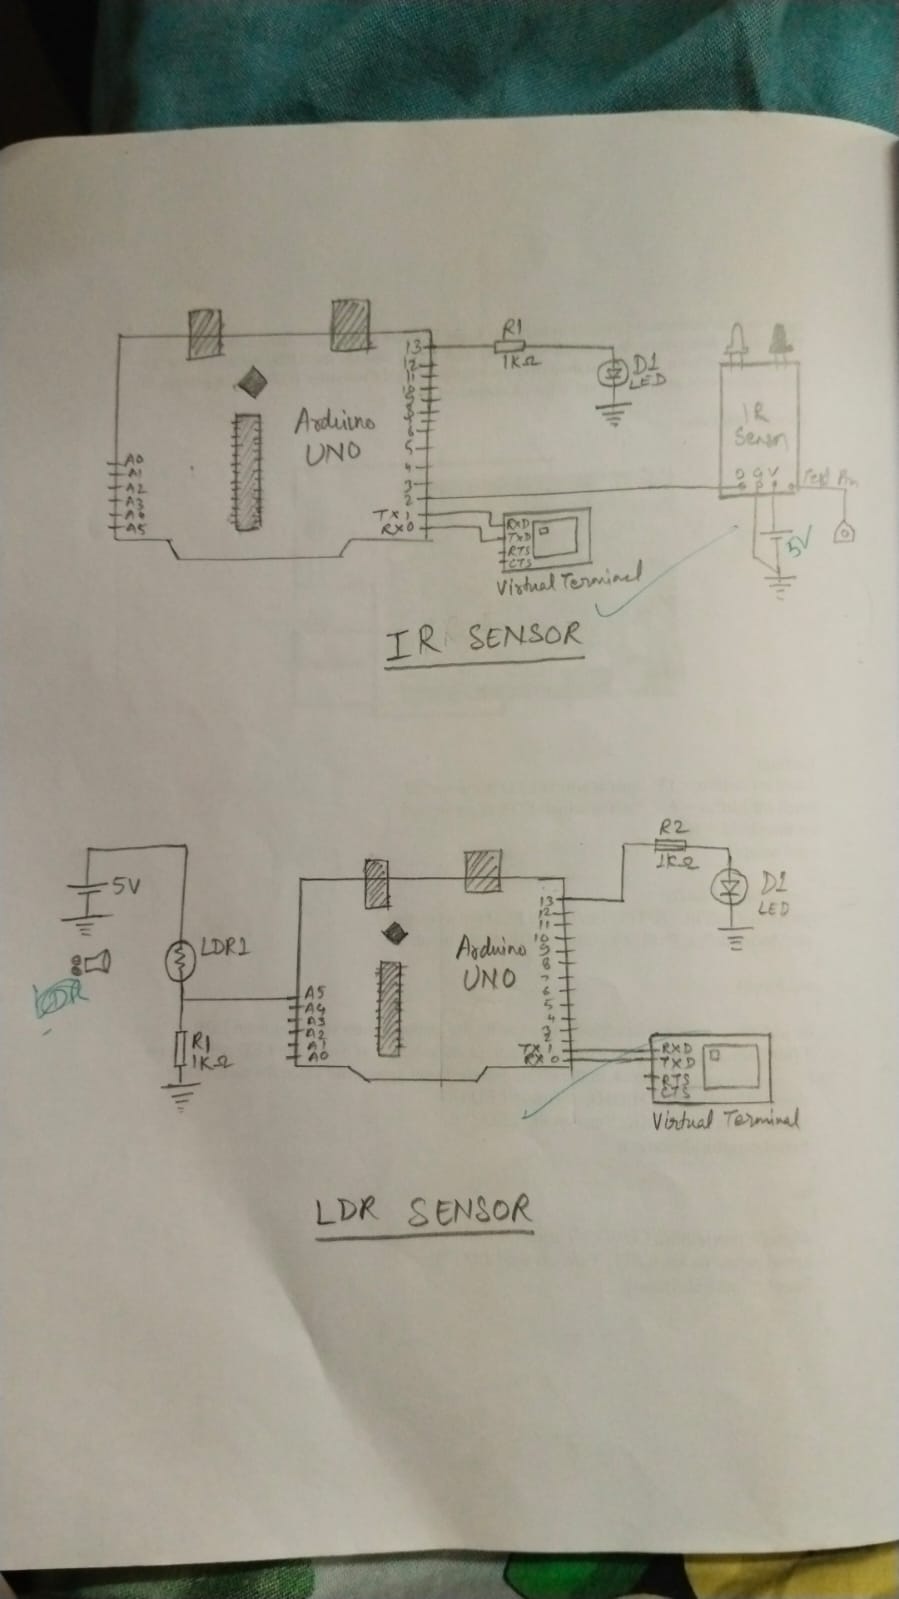 R1
1KΩ
D1
LED
13
12
11
10
9
8
7
6
5
4
3
2
TX 1
RX 0
Arduino
UNO
A0
A1
A2
A3
A4
A5
IR
Sensor
O G V
Test Pin
5V
RXD
TXD
RTS
CTS
Virtual Terminal
IR SENSOR
R2
1KΩ
D1
LED
5V
LDR1
R1
1KΩ
A5
A4
A3
A2
A1
A0
Arduino
UNO
13
12
11
10
9
8
7
6
5
4
3
2
TX 1
RX 0
RXD
TXD
RTS
CTS
Virtual Terminal
LDR SENSOR